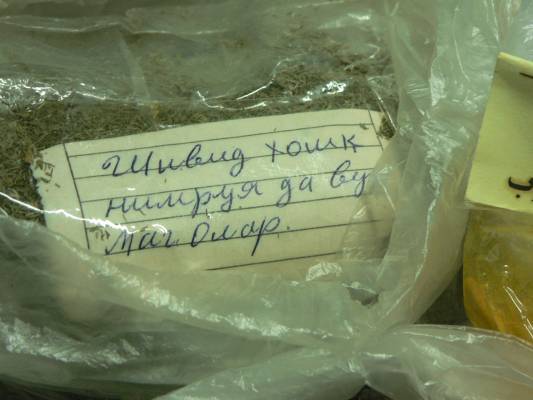 Шивид хошк
нимруя да ву
маг. Олар.